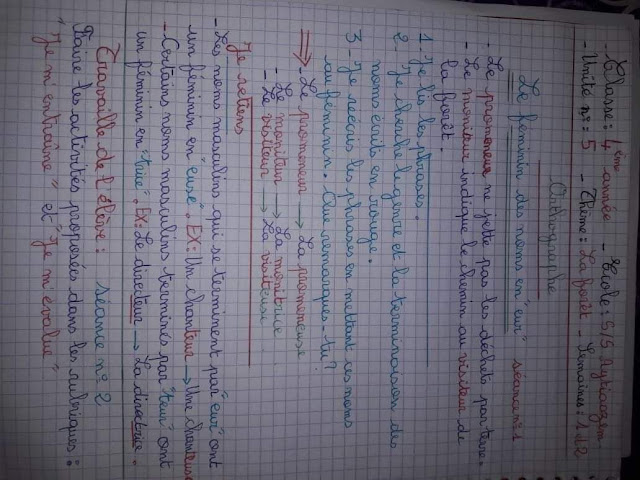 - Classe : 4ème année - Ecole : S/S
- Unité n° : 5 - Thème : La forêt - Semaines : 1 et 2
Orthographe
Le féminin des noms en "eur" séance n° 1
- Le promeneur ne jette pas les déchets par terre.
- Le moniteur indique le chemin au visiteur de
la forêt.
1 - Je lis les phrases.
2 - Je cherche le genre et la terminaison des
noms écrits en rouge.
3 - Je réécris les phrases en mettant ces noms
au féminin. Que remarques-tu ?
- Le promeneur → La promeneuse
- Le moniteur → La monitrice
- Le visiteur → La visiteuse
Je retiens
- Les noms masculins qui se terminent par "eur" ont
un féminin en "euse". EX : Un chanteur → Une chanteuse
- Certains noms masculins terminés par "teur" ont
un féminin en "trice". EX : Le directeur → La directrice.
Travaille de l'élève : séance n° 2
Faire les activités proposées dans les rubriques :
"Je m'entraîne" et "Je m'évalue"